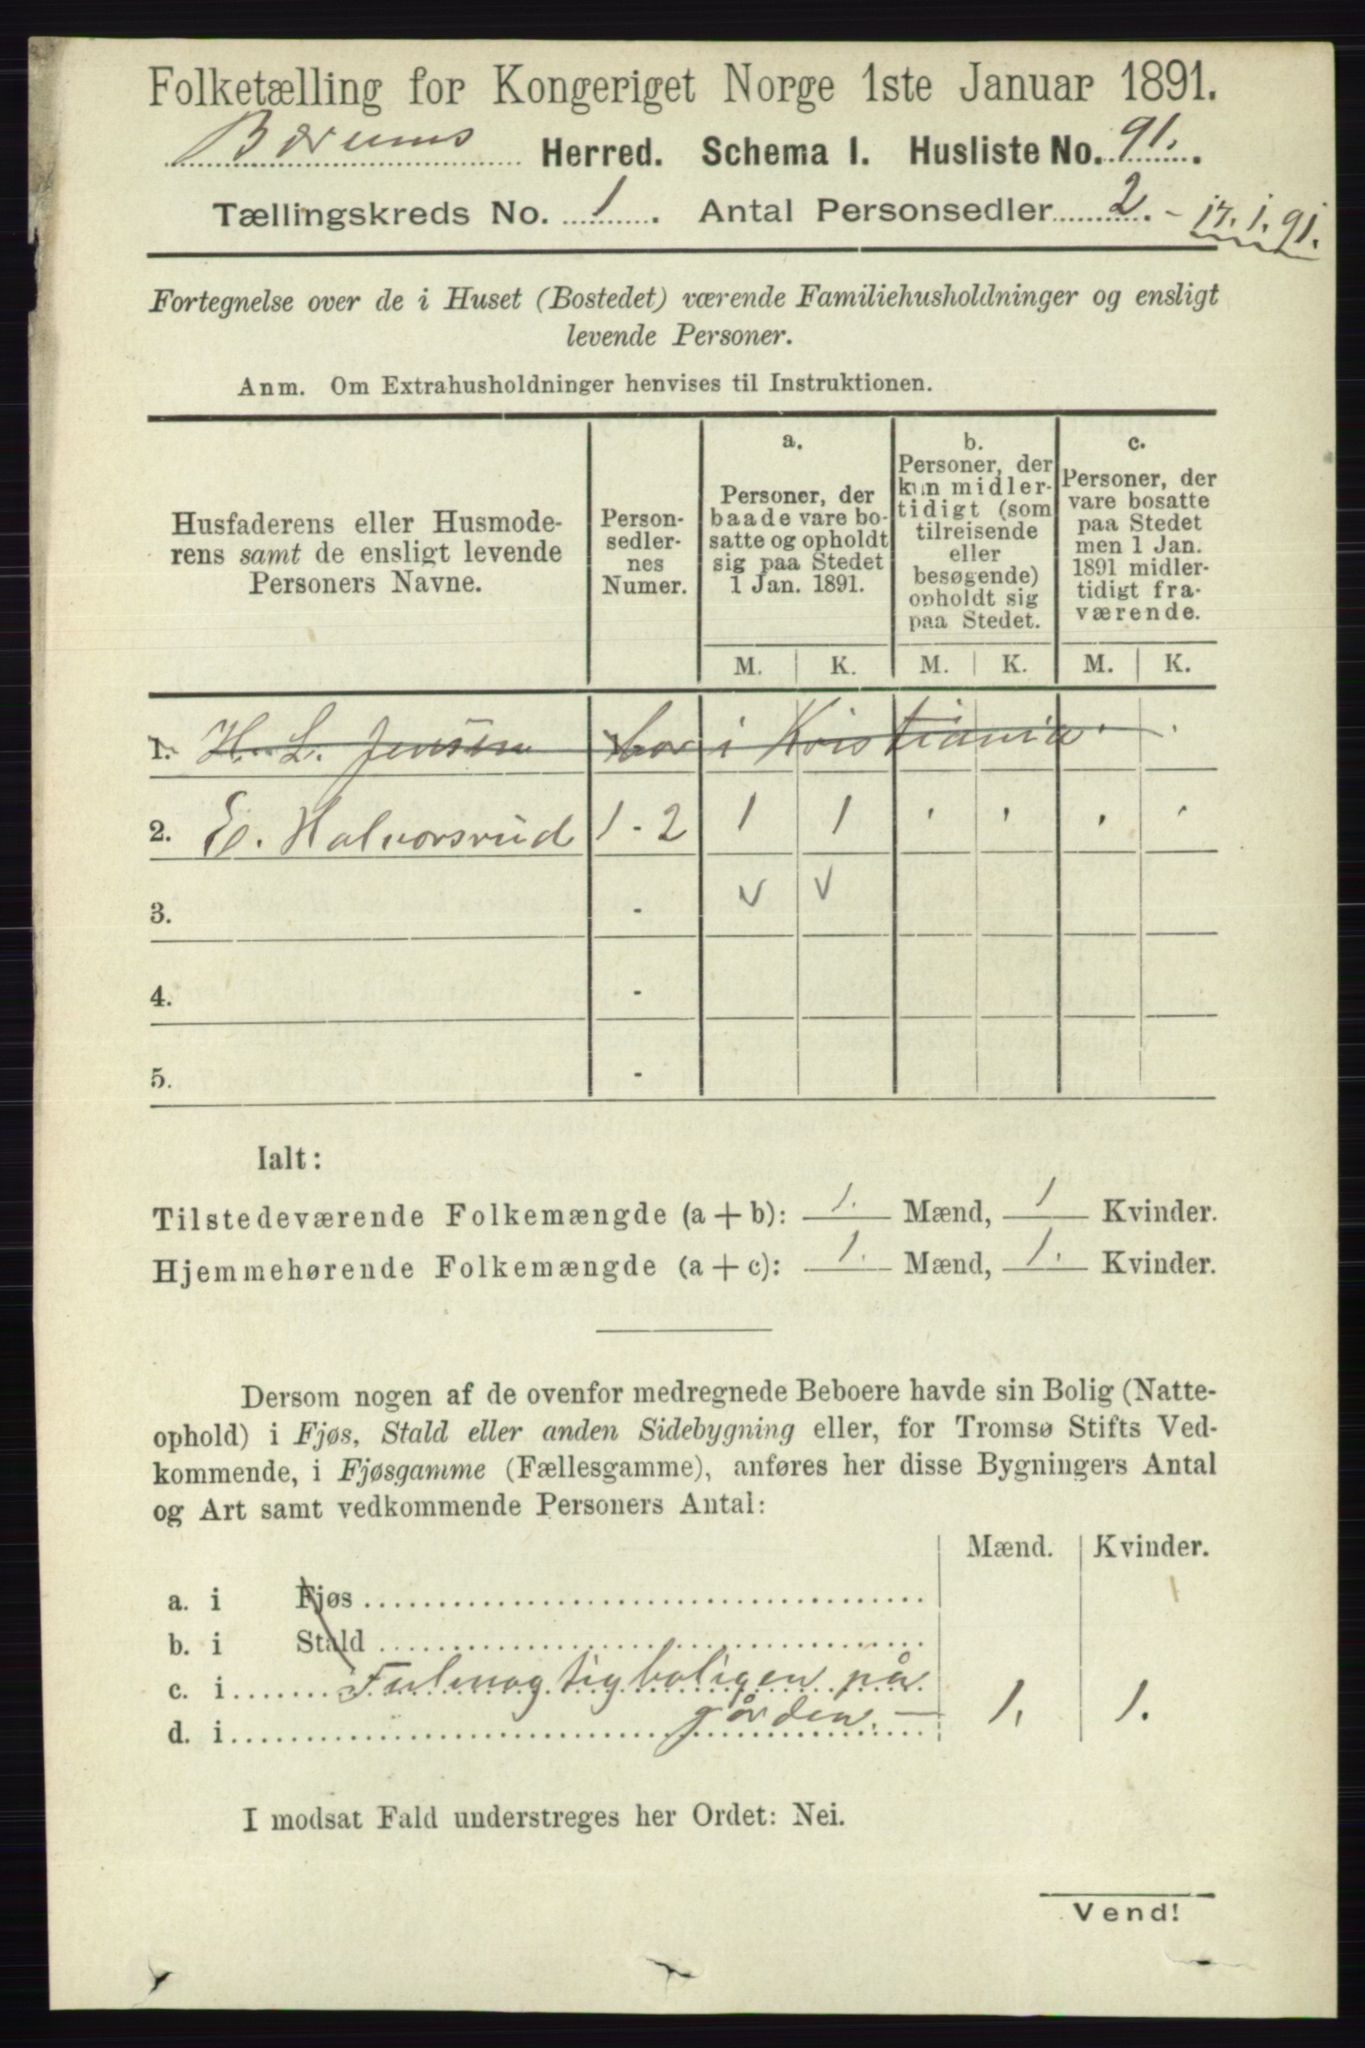 Folketælling for Kongeriget Norge 1ste Januar 1891.
Bærums Herred. Schema I. Husliste No. 91.
Tællingskreds No. 1. Antal Personsedler 2. - 17.1.91.
Fortegnelse over de i Huset (Bostedet) værende Familiehusholdninger og ensligt
levende Personer.
Anm. Om Extrahusholdninger henvises til Instruktionen.
Husfaderens eller Husmode-
rens samt de ensligt levende
Personers Navne.
Person-
sedler-
nes
Numer.
a.
Personer, der
baade vare bo-
satte og opholdt
sig paa Stedet
1 Jan. 1891.
b.
Personer, der
kun midler-
tidigt (som
tilreisende
eller
besøgende)
opholdt sig
paa Stedet.
c.
Personer, der
vare bosatte
paa Stedet
men 1 Jan.
1891 midler-
tidigt fra-
værende.
M. K. M. K. M. K.
1. H. L. Jensen bor i Kristiania.
2. E. Halvorsrud 1 - 2 1 1
3. - v v
4. -
5. -
Ialt:
Tilstedeværende Folkemængde (a + b): 1. Mænd, 1 Kvinder.
Hjemmehørende Folkemængde (a + c): 1. Mænd, 1. Kvinder.
Dersom nogen af de ovenfor medregnede Beboere havde sin Bolig (Natte-
ophold) i Fjøs, Stald eller anden Sidebygning eller, for Tromsø Stifts Ved-
kommende, i Fjøsgamme (Fællesgamme), anføres her disse Bygningers Antal
og Art samt vedkommende Personers Antal:
Mænd. Kvinder.
a. i Fjøs
b. i Stald
c. i Fulmogtigboligen på
d. i gården. - 1. 1.
I modsat Fald understreges her Ordet: Nei.
Vend!